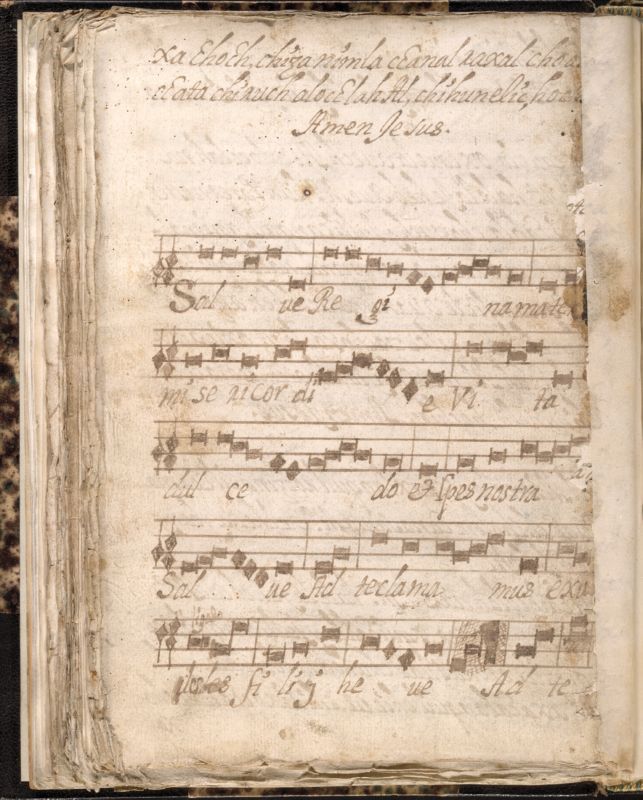 xa Ehoeh, chiga nimla cEanal raxal Choa
cEata chiruch alocElah Al, chihunelic, hoE
Amen Jesus.
Sal ve Re gi na mate
mi se ricor di e Vi ta
dul ce do et spes nostra
Sal ve Ad te clama mus exu
les fi li j he ve Ad te